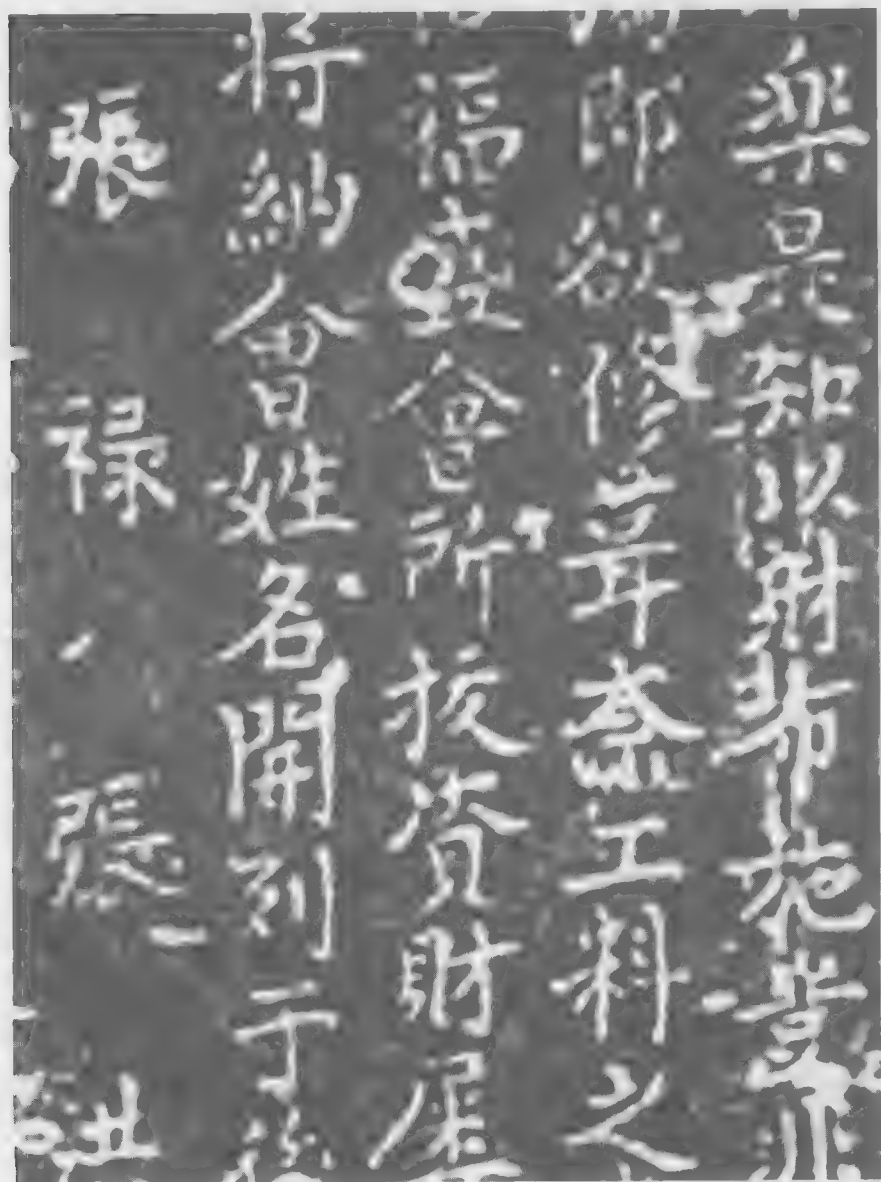 楽是知以財布施豈非
師欲修葺柰工料之
福會所資財
将納會姓名開列于後
張禄 張